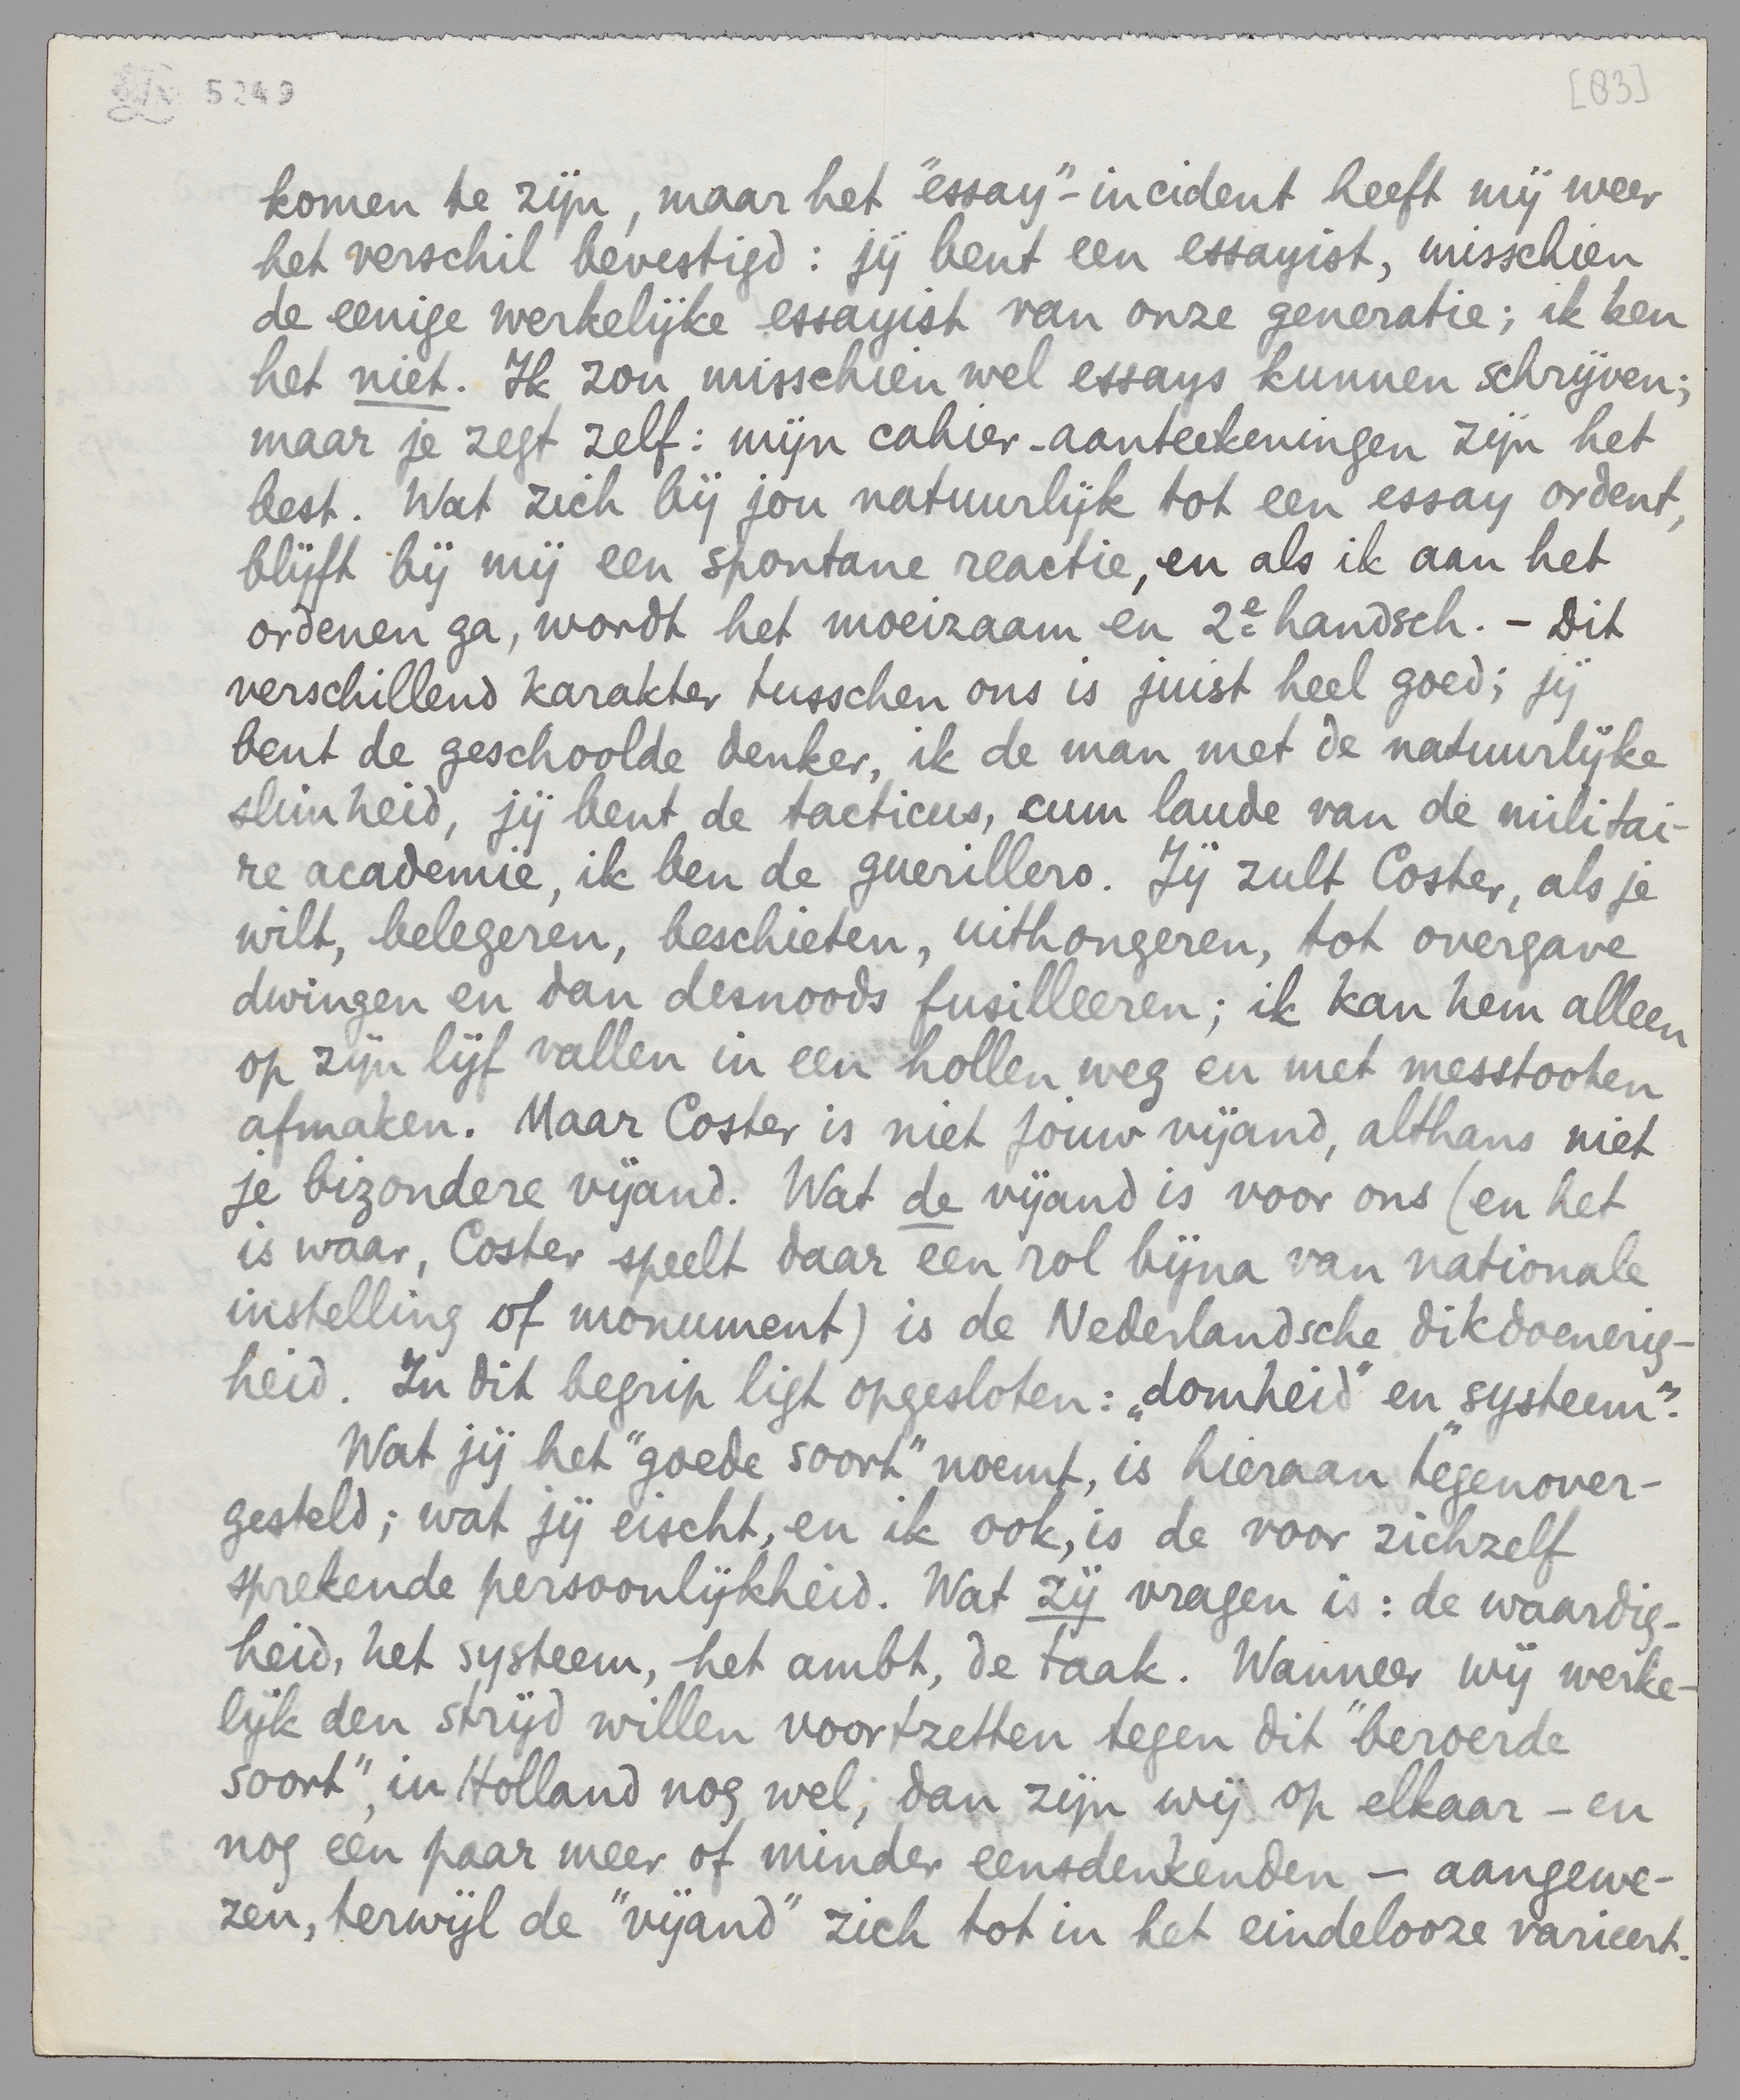 5249
[83]
komen te zijn, maar het "essay"-incident heeft mij weer
het verschil bevestigd: jij bent een essayist, misschien
de eenige werkelijke essayist van onze generatie; ik ben
het niet. Ik zou misschien wel essays kunnen schrijven;
maar je zegt zelf: mijn cahier-aanteekeningen zijn het
best. Wat zich bij jou natuurlijk tot een essay ordent,
blijft bij mij een spontane reactie, en als ik aan het
ordenen ga, wordt het moeizaam en 2e handsch. - Dit
verschillend karakter tusschen ons is juist heel goed; jij
bent de geschoolde denker, ik de man met de natuurlijke
slimheid, jij bent de tacticus, cum laude van de militai-
re academie, ik ben de guerillero. Jij zult Coster, als je
wilt, belegeren, beschieten, uithongeren, tot overgave
dwingen en dan desnoods fusilleeren; ik kan hem alleen
op zijn lijf vallen in een hollen weg en met messtooten
afmaken. Maar Coster is niet jouw vijand, althans niet
je bizondere vijand. Wat de vijand is voor ons (en het
is waar, Coster speelt daar een rol bijna van nationale
instelling of monument) is de Nederlandsche dikdoenerig-
heid. In dit begrip ligt opgesloten: „domheid" en „systeem".
Wat jij het "goede soort" noemt, is hieraan tegenover-
gesteld; wat jij eischt, en ik ook, is de voor zichzelf
sprekende persoonlijkheid. Wat zij vragen is: de waardig-
heid, het systeem, het ambt, de taak. Wanneer wij werke-
lijk den strijd willen voortzetten tegen dit "beroerde
soort", in Holland nog wel, dan zijn wij op elkaar - en
nog een paar meer of minder eensdenkenden - aangewe-
zen, terwijl de "vijand" zich tot in het eindelooze varieert.